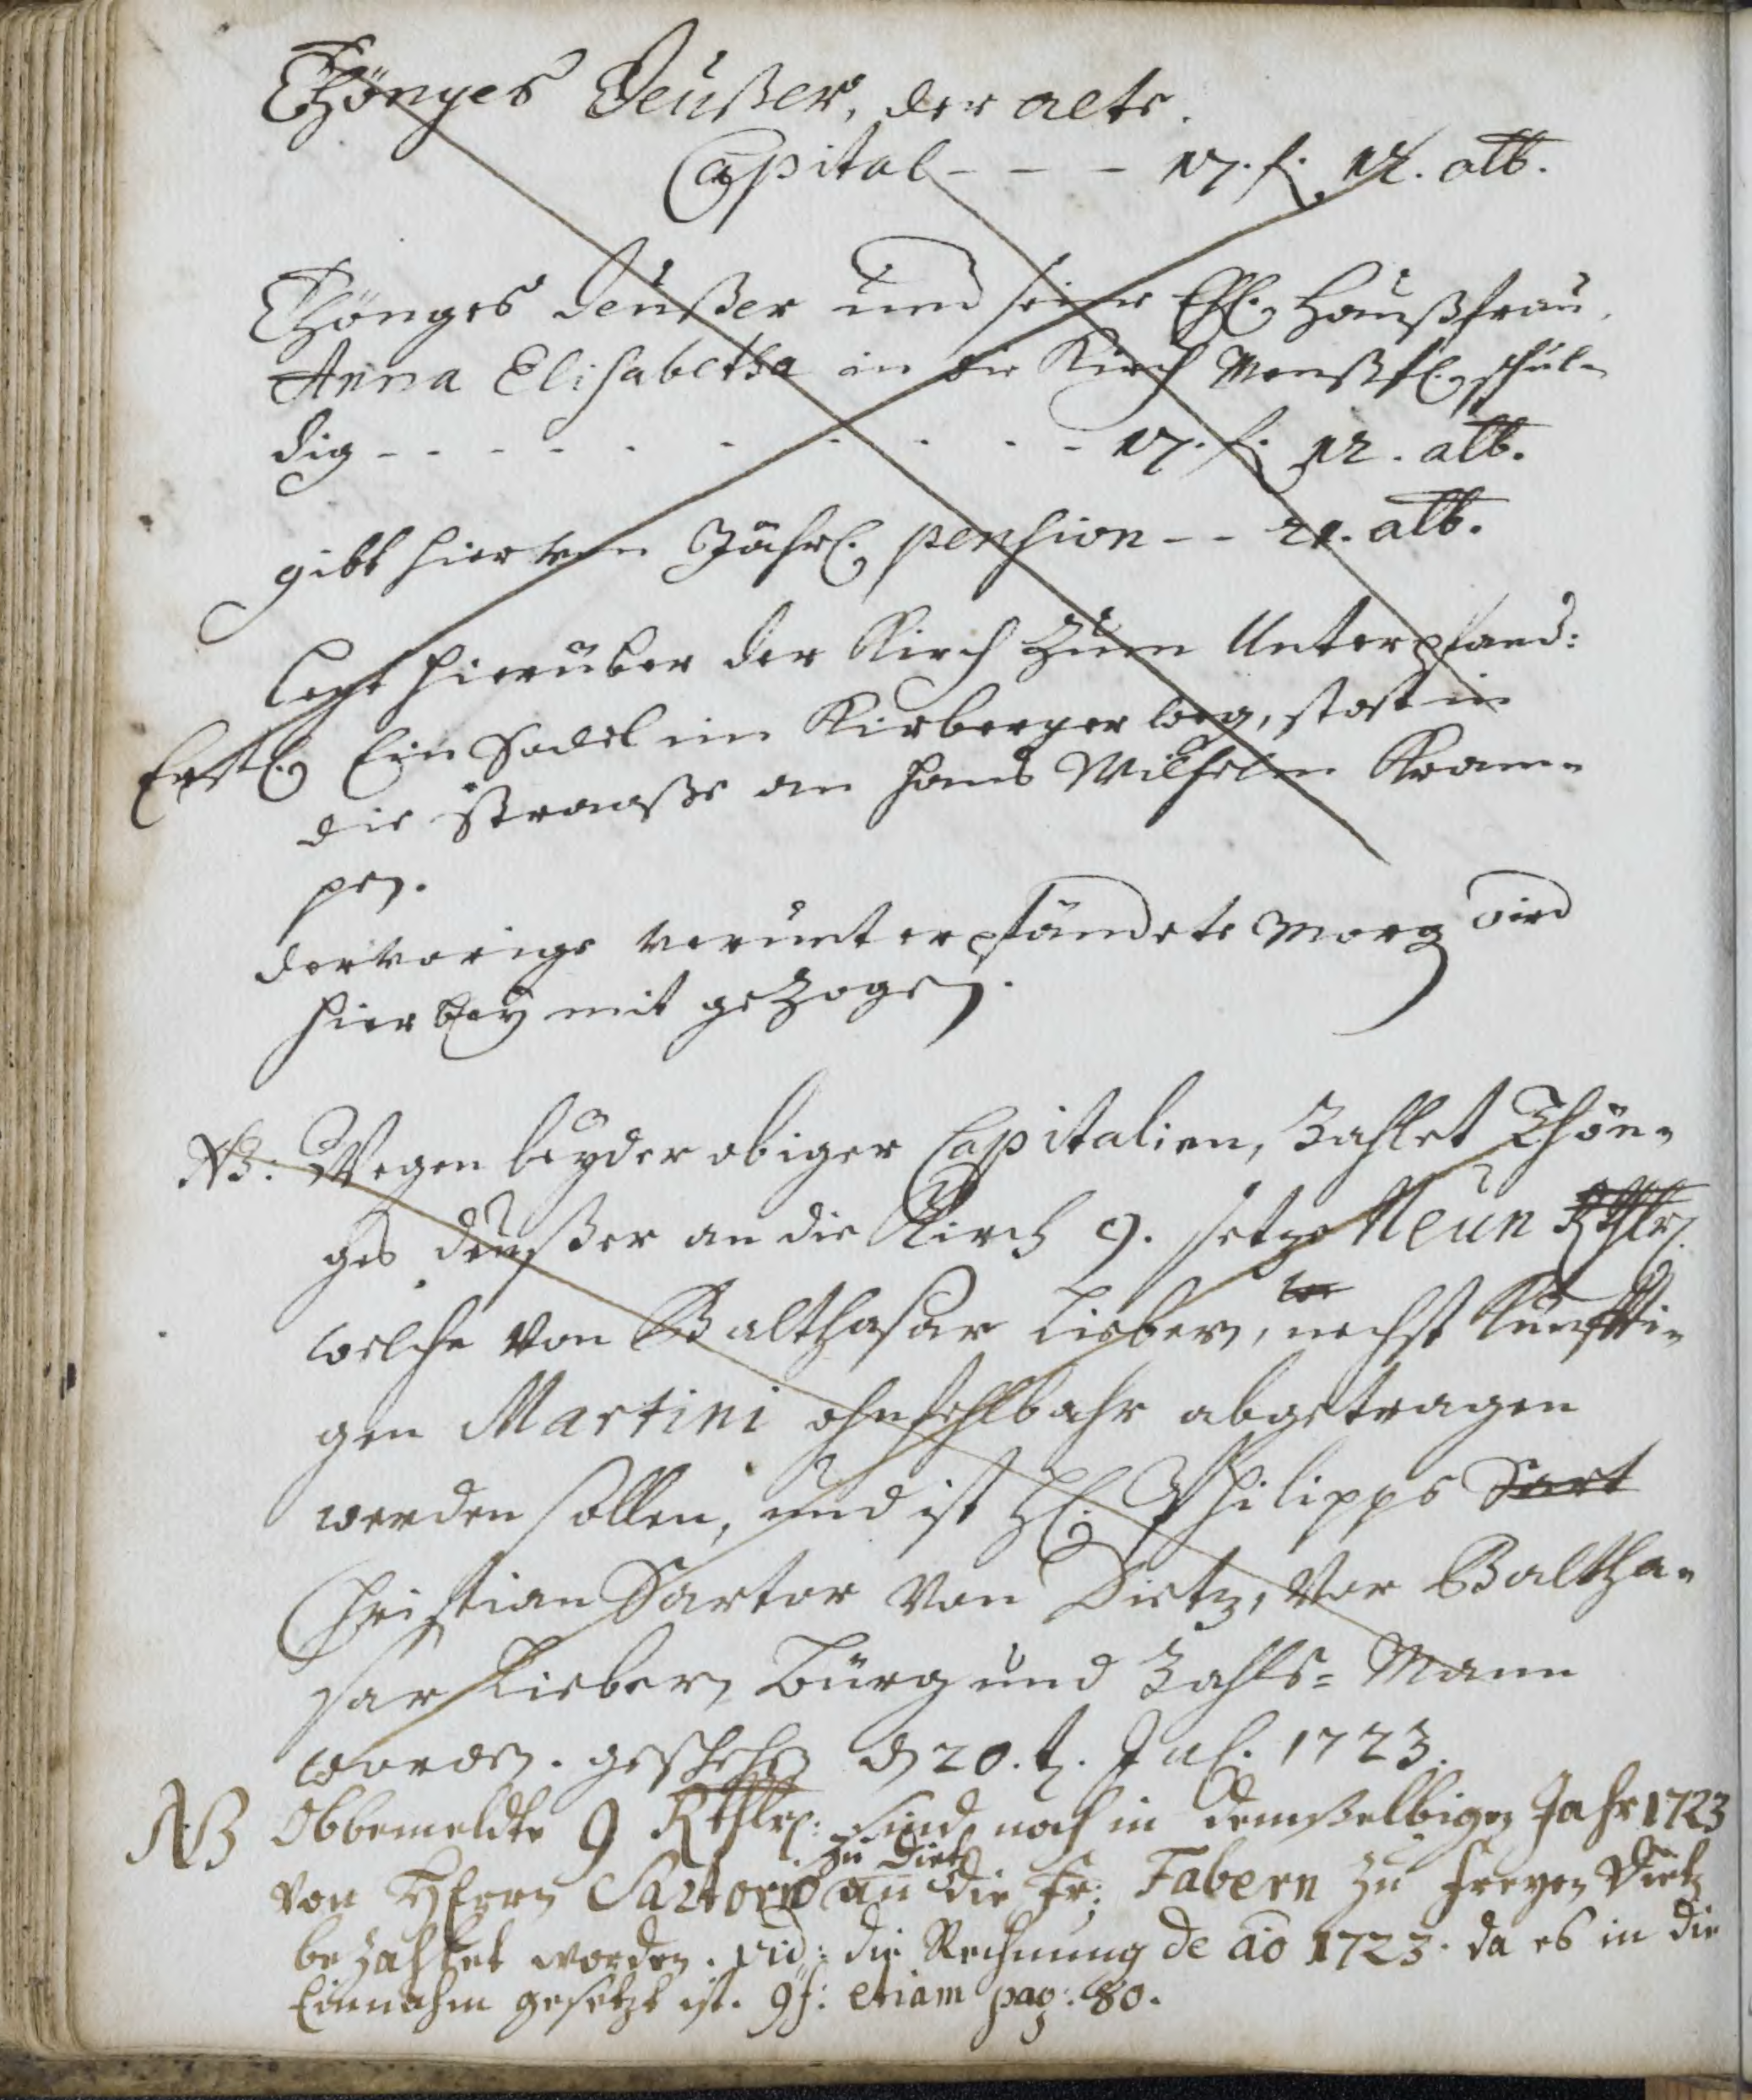 Thönges Deußer, der alte.
Capital - - - 17. f. 12. alb.
Thönges Deußer und seine Ehl. Haußfrau,
Anna Elisabetha in die Kirch schul-
dig - - - - - - - - - - 17. f. 12. alb.
gibt hiervon Jährl. pension - - 21. alb.
legt hierüber der Kirch zum Unterpfand:
Erstl. Ein Sadel im Kirberger weg, stost in
die straaße an Hans Wilhelm Kram-
pen.
der vorige verunterpfändete Morg wird
hierbey mit gezogen.
NB: Wegen beyder obiger Capitalien, zahlet Thön-
ges Deußer an die Kirch 9. setze Neun Rthlr.
welche von Balthasar Lieber, nechst künffti-
gen Martini ohnfehlbahr abgetragen
werden sollen, und ist H. Philipps Sart
Christian Sartor von Dietz, vor Baltha-
sar Lieber, Bürg und Zahls- Mann
worden. geschehen d 20. t. Jul. 1723.
NB Obbemeldte 9 Rthlr: sind noch in demselbigen Jahr 1723
zu Dietz
von Herrn Sartorio an die Fr: Fabern zu Freyen Dietz
bezahlet worden. vid: die Rechnung de ao 1723. da es in die
Einnahm gesetzt ist. etiam pag: 80.